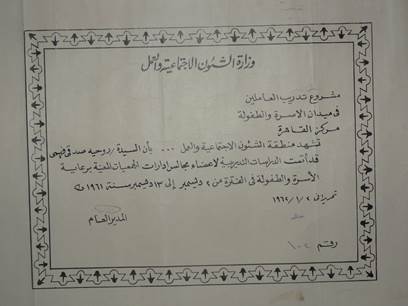 وزارة الشئون الاجتماعية والعمل
مشروع تدريب العاملين
فى ميدان الاسرة والطفولة
مركز القاهرة
تشهد منطقة الشئون الاجتماعية والعمل ... بأن السيدة / روحيه صدقى فهمى
قد أتمت الدراسات التدريبية لأعضاء مجالس إدارات الجمعيات المعنية برعاية
الأسرة والطفولة فى الفترة من ٢ ديسمبر إلى ١٣ ديسمبر سنة ١٩٦١
تحريرا فى ٢ / ١ / ١٩٦٢
المدير العام
رقم